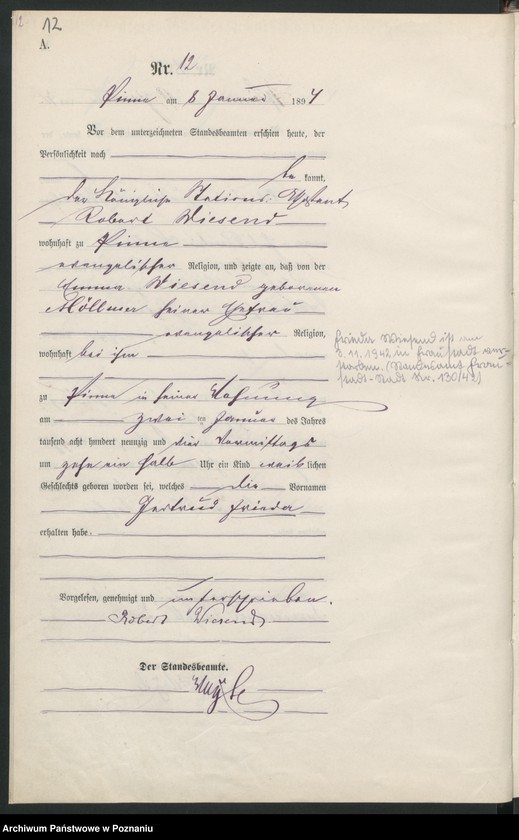 12
12
A.
Nr. 12
Pinne am 8 Januar 1894
Vor dem unterzeichneten Standesbeamten erschien heute, der
Persönlichkeit nach
be kannt,
der Königliche Stations-Assistent
Robert Wiesend
wohnhaft zu Pinne
evangelischer Religion, und zeigte an, daß von der
Emma Wiesend geborenen
Möllmer seiner Ehefrau
evangelischer Religion,
wohnhaft bei ihm
zu Pinne in seiner Wohnung
am zwei ten Januar des Jahres
tausend acht hundert neunzig und vier Vormittags
um zehn ein halb Uhr ein Kind weib lichen
Geschlechts geboren worden sei, welches die Vornamen
Gertrud Frieda
erhalten habe.
Vorgelesen, genehmigt und unterschrieben.
Robert Wiesend
Der Standesbeamte.
Frieda Wiesend ist am
3.11.1942 in Fraustadt ver-
storben. (Standesamt Frau-
stadt-Stadt Nr. 130/42)
Archiwum Państwowe w Poznaniu